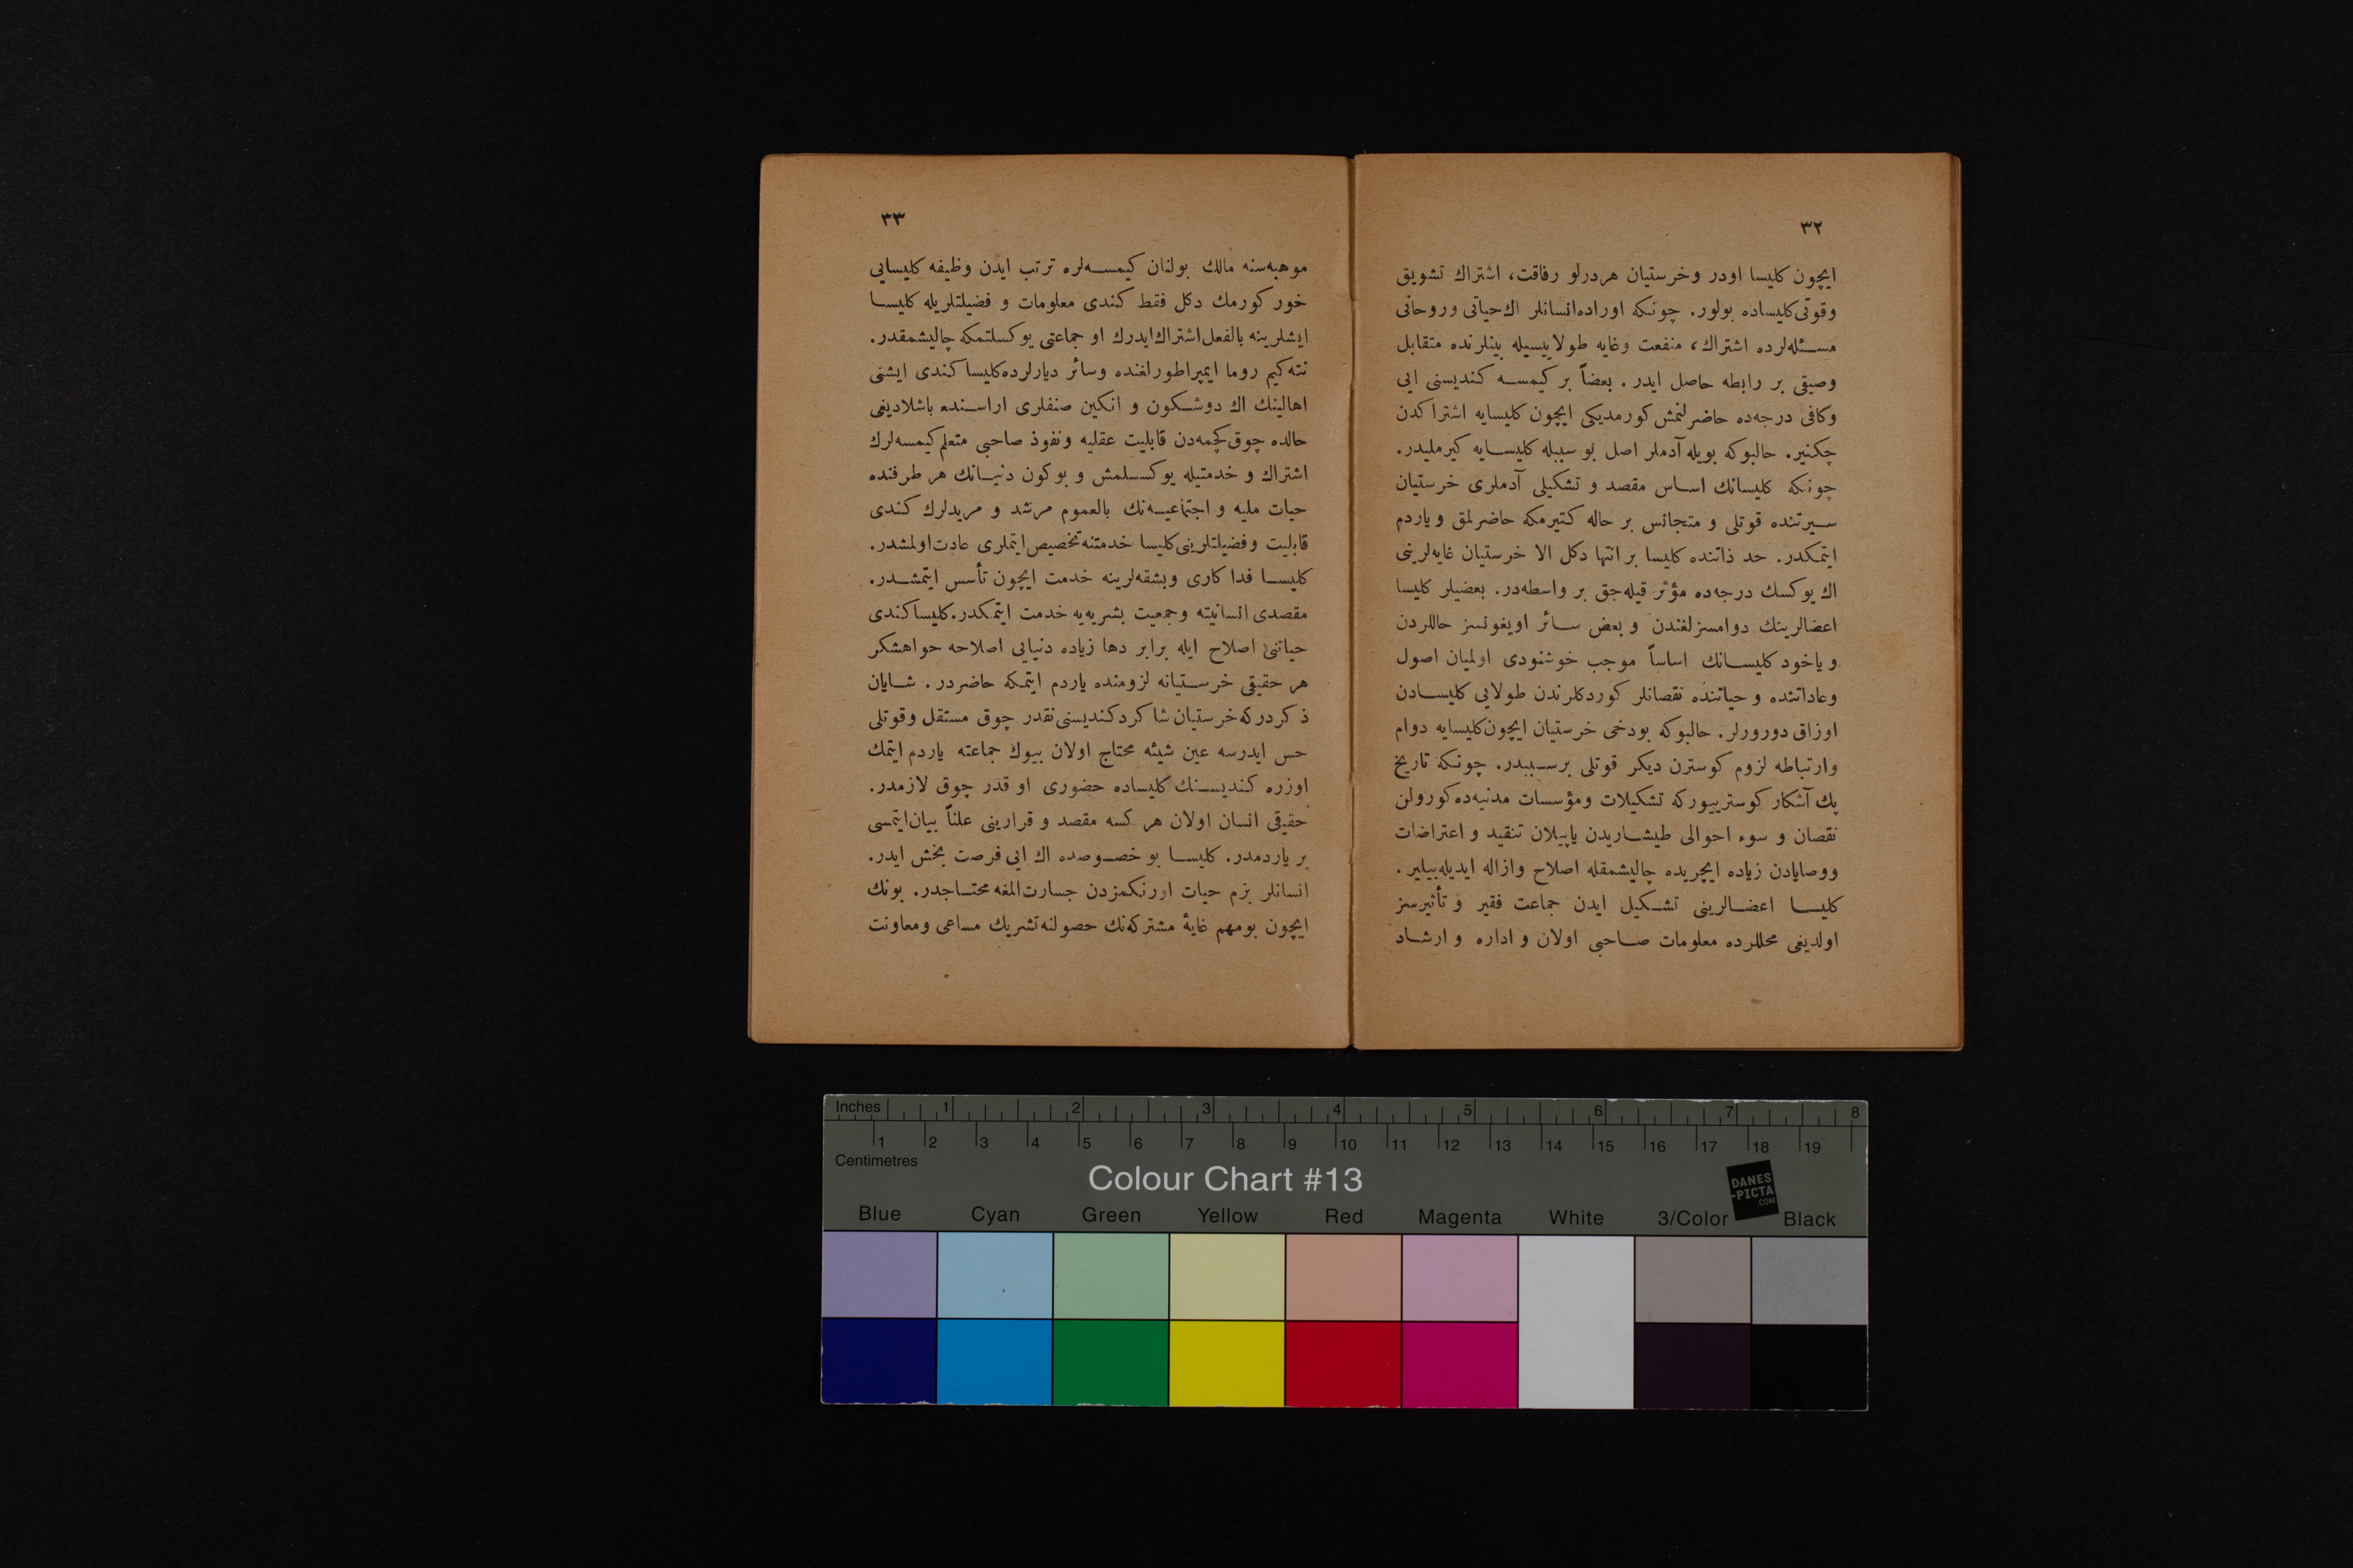 ٣٢
ایچون كلیسا اودر وخرستیان هردرلو رفاقت، اشتراك تشویق
وقوتی كلیساده بولور. چونكه اوراده انسانلر اك حیاتی وروحانی
مسئله‌لرده اشتراك، منفعت وغایه طولاییسیله بینلرنده متقابل
وصیقی بر رابطه حاصل ایدر. بعضاً بر كیمسه كندیسنی ایی
وكافی درجه‌ده حاضرلنمش كورمدیكی ایچون كلیسایه اشتراكدن
چكنیر. حالبوكه بویله آدملر اصل بو سببله كلیسایه كیرملیدر.
چونكه كلیسانك اساس مقصد و تشكیلی آدملری خرستیان
سیرتنده قوتلی و متجانس بر حاله كتیرمكه حاضرلمق و یاردم
ایتمكدر. حد ذاتنده كلیسا بر انتها دكل الا خرستیان غایه‌لرینی
اك یوكسك درجه‌ده مؤثر قیله‌جق بر واسطه‌در. بعضیلر كلیسا
اعضالرینك دوامسزلغندن و بعض سائر اویغونسز حاللردن
و یاخود كلیسانك اساساً موجب خوشنودی اولمیان اصول
وعاداتنده و حیاتنده نقصانلر كوردكلرندن طولایی كلیسادن
اوزاق دورورلر. حالبوكه بودخی خرستیان ایچون كلیسایه دوام
وارتباطه لزوم كوسترن دیكر قوتلی برسببدر. چونكه تاریخ
پك آشكار كوستریبوركه تشكیلات ومؤسسات مدنیه‌ده كورولن
نقصان و سوء احوالی طیشاریدن یاپیلان تنقید و اعتراضات
ووصایادن زیاده ایچریده چالیشمقله اصلاح وازاله ایدیله‌بیلیر.
كلیسا اعضالرینی تشكیل ایدن جماعت فقیر و تأثیرسز
اولدیغی محللرده معلومات صاحبی اولان و اداره و ارشاد
٣٣
موهبه‌سنه مالك بولنان كیمسه‌لره ترتب ایدن وظیفه كلیسایی
خور كورمك دكل فقط كندی معلومات و فضیلتلریله كلیسا
ایشلرینه بالفعل اشتراك ایدرك او جماعتی یوكسلتمكه چالیشمقدر.
نته‌كیم روما ایمپراطورلغنده وسائر دیارلرده كلیسا كندی ایشنی
اهالینك اك دوشكون و انكین صنفلری اراسنده باشلادیغی
حالده چوق كچمه‌دن قابلیت عقلیه ونفوذ صاحبی متعلم كیمسه‌لرك
اشتراك و خدمتیله یوكسلمش و بوكون دنیانك هر طرفنده
حیات ملیه و اجتماعیه‌نك بالعموم مرشد و مریدلرك كندی
قابلیت وفضیلتلرینی كلیسا خدمتنه تخصیص ایتملری عادت اولمشدر.
كلیسا فداكاری وبشقه‌لرینه خدمت ایچون تأسس ایتمشدر.
مقصدی انسانیته وجمعیت بشریه‌یه خدمت ایتمكدر. كلیسا كندی
حیاتنی اصلاح ایله برابر دها زیاده دنیایی اصلاحه حواهشكر
هر حقیقی خرستیانه لزومنده یاردم ایتمكه حاضردر. شایان
ذكردركه خرستیان شاكرد كندیسنی نقدر چوق مستقل وقوتلی
حس ایدرسه عین شیئه محتاج اولان بیوك جماعته یاردم ایتمك
اوزره كندیسنك كلیساده حضوری او قدر چوق لازمدر.
حقیقی انسان اولان هر كسه مقصد و قرارینی علناً بیان ایتمسی
بر یاردمدر. كلیسا بو خصوصده اك ایی فرصت بخش ایدر.
انسانلر بزم حیات اورنكمزدن جسارت المغه محتاجدر. بونك
ایچون بومهم غایهٔ مشتركه‌نك حصولنه تشریك مساعی ومعاونت
Inches 1 2 3 4 5 6 7 8
1 2 3 4 5 6 7 8 9 10 11 12 13 14 15 16 17 18 19
Centimetres
Colour Chart #13
DANES
-PICTA
.COM
Blue Cyan Green Yellow Red Magenta White 3/Color Black